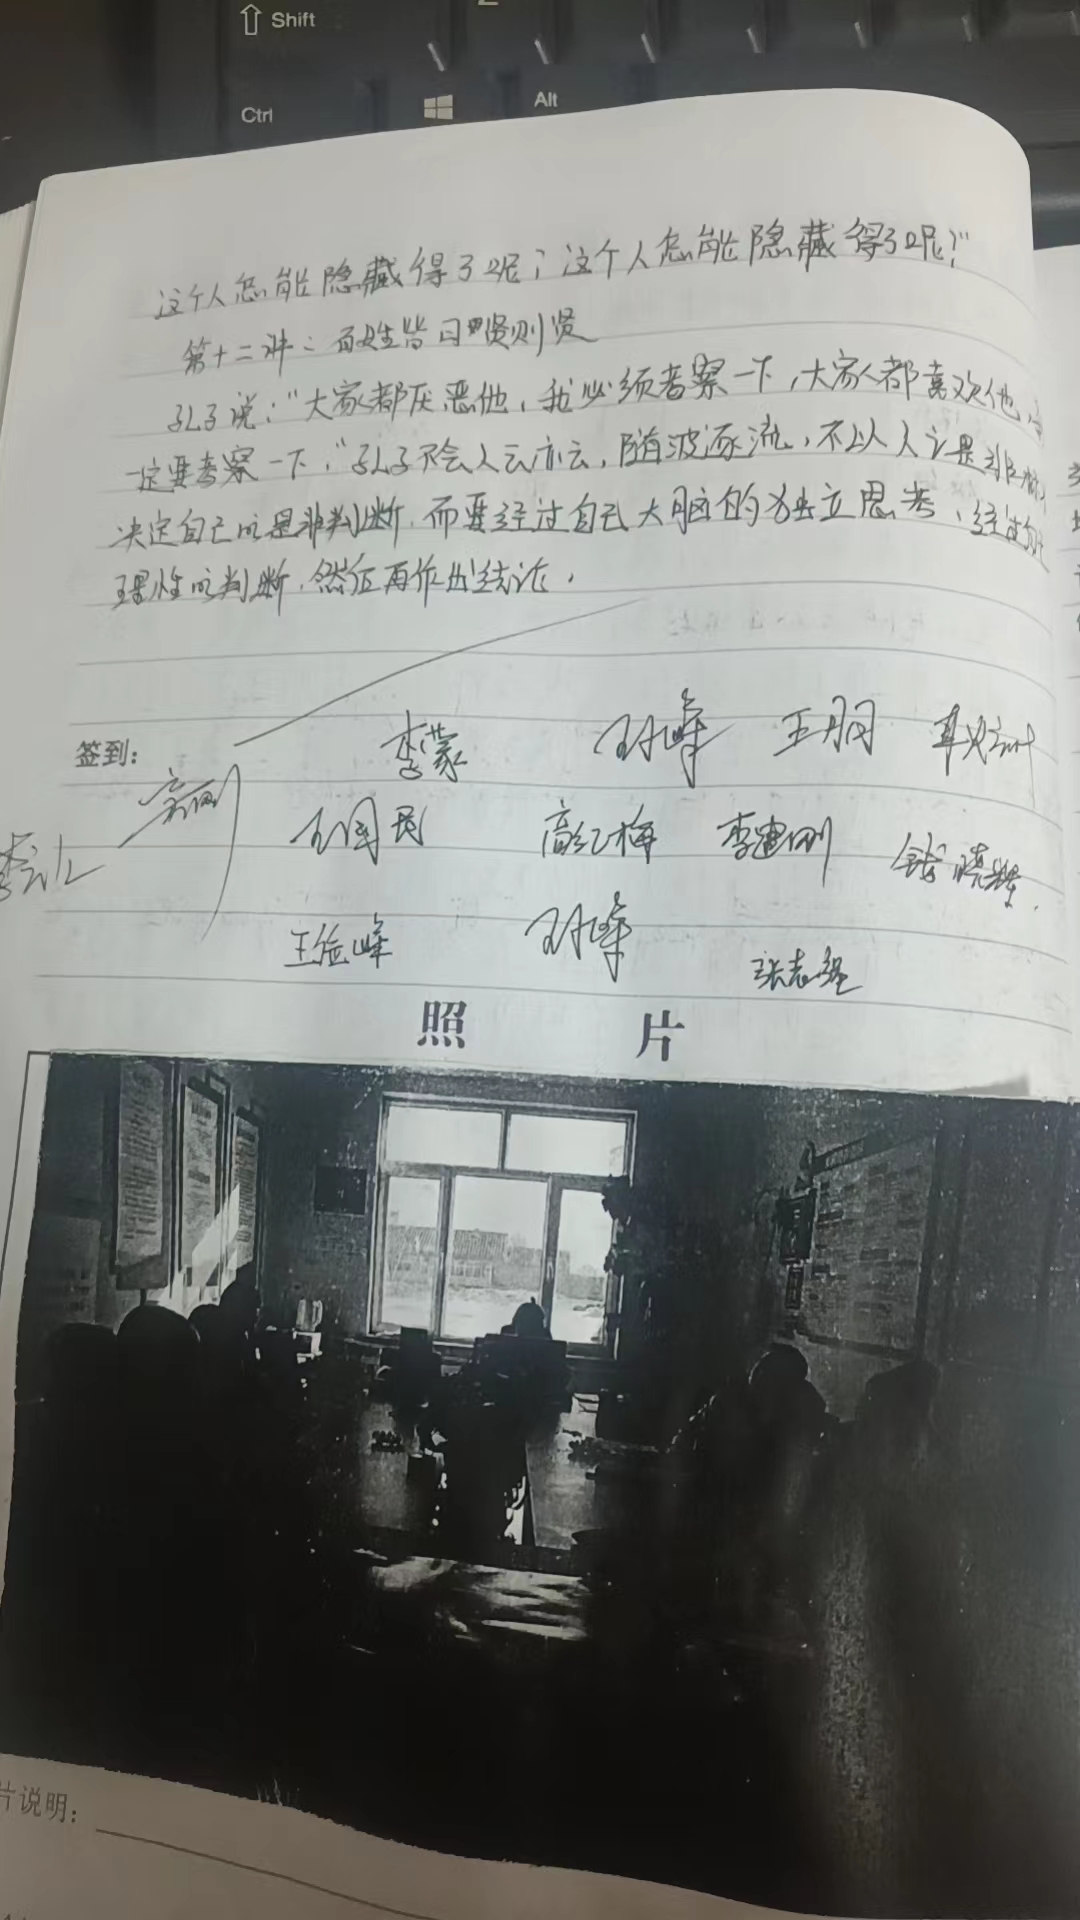 Shift
Ctrl
Alt
这个人怎能隐藏得了呢？这个人怎能隐藏得了呢？"
第十二讲：百姓皆曰贤则贤
孔子说："大家都厌恶他，我必须考察一下，大家都喜欢他，
一定要考察一下，"孔子不会人云亦云，随波逐流，不以人之是非
决定自己的是非判断，而要经过自己大脑的独立思考、经过
理性的判断，然后再作出结论。
签到：
李蒙
王朋
王国民
高红梅
李建刚
钱晓辉
张志强
照 片
片说明：